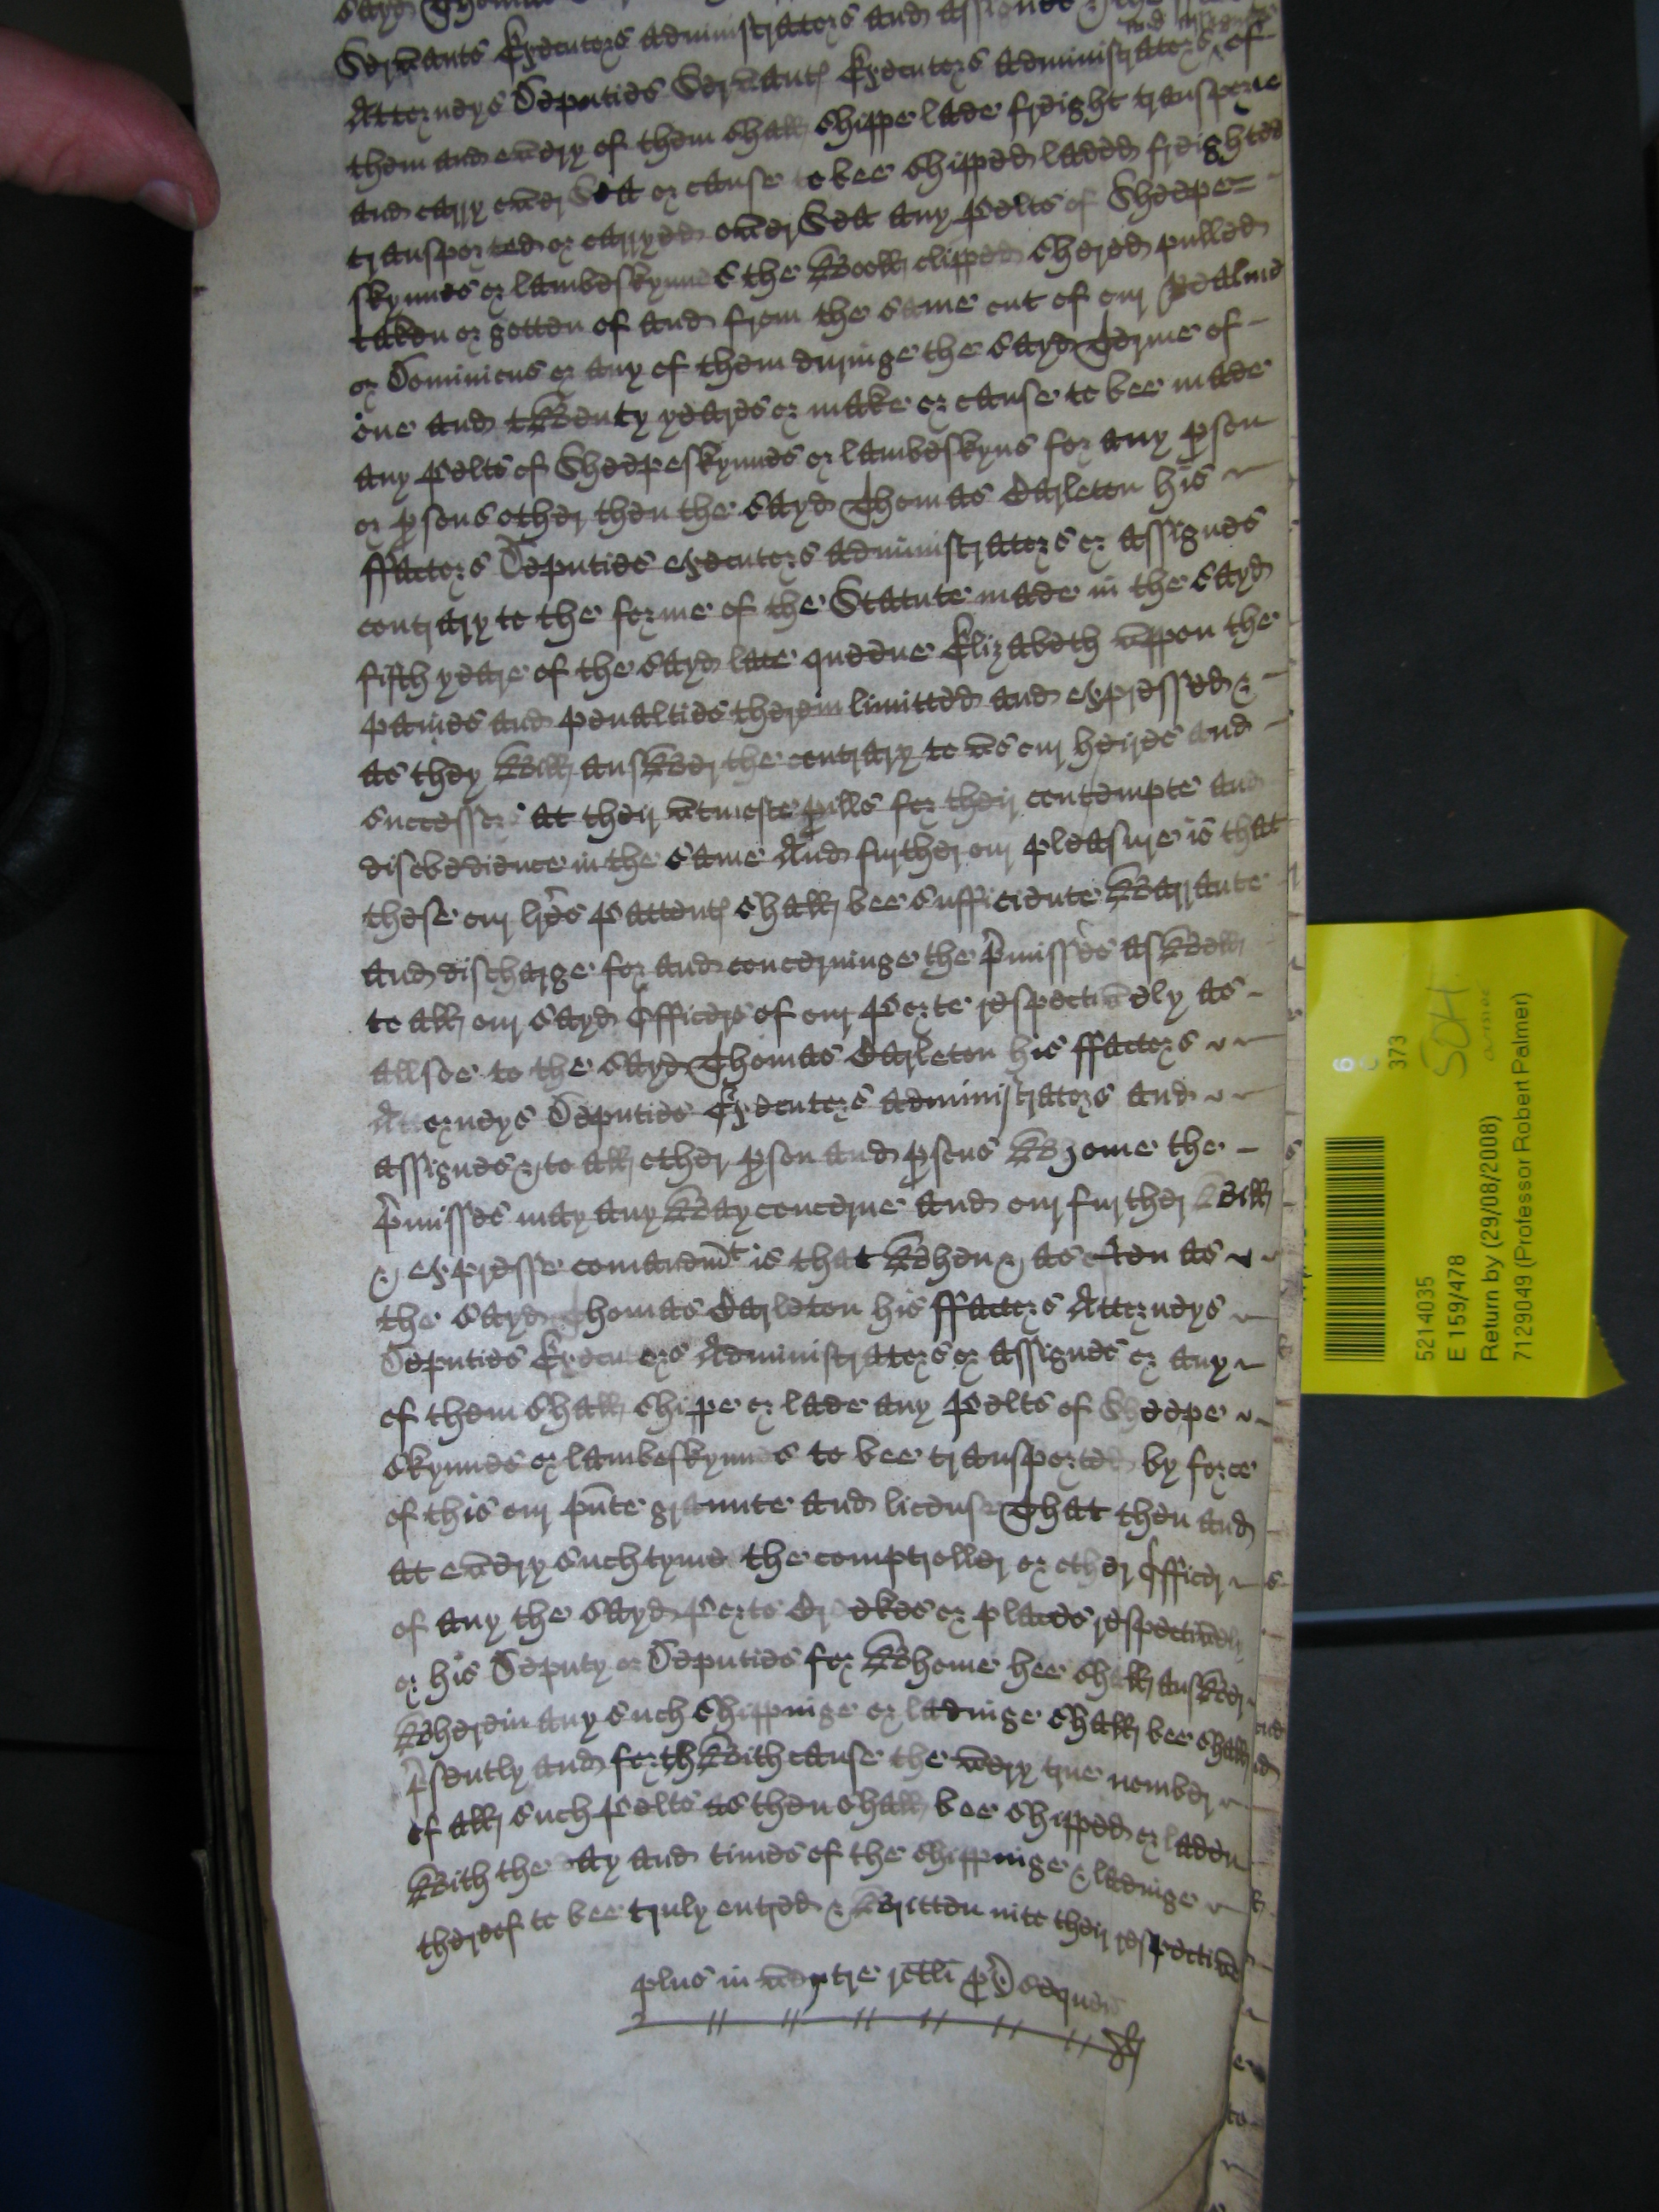 sayd Thomas
Servants Executors administrators and assignes
and assignes
Attorneys Deputies Servant℘ Executors administrators of
them and every of them shall shippe lade freight transporte
and carry over Sea or cause to bee shipped laded freighted
transported or carryed over Sea any Pelts of Sheepe=
skynnes or lambeskynnes the Wooll clipped shered pulled
taken or gotten of and from the same out of our Realme
or Dominions or any of them duringe the sayd Terme of
one and twenty yeares or make or cause to bee made
any Pelts of Sheepeskynnes or lambeskyns for any ꝑson
or ꝑsons other then the sayd Thomas Carleton his
ffactors Deputies executors administrators or assignes
contrary to the forme of the Statute made in the sayd
fifth yeare of the sayd late queene Elizabeth uppon the
paines and penalties therein limitted and expressed &
as they will answer the contrary to us our heires and
successors at their utmoste ꝑills for their contempte and
disobedience in the same And further our pleasure is that
these our lr̃es Pattent℘ shall bee sufficiente Warrante
and discharge for and concerninge the p̃misses aswell
to all our sayd Officers of our Porte respectively as
allsoe to the sayd Thomas Carleton his ffactors
Attorneys Deputies Executors administrators and
assignes & to all other ꝑson and ꝑsons whome the
p̃misses may any way concerne and our further will
& expresse comandm̃t is that when & as often as
the sayd Thomas Carleton his ffactors Attorneys
Deputies Executors Administrators or assignes or any
of them shall shippe or lade any Pelts of Sheepe
skynnes or lambeskynnes to bee transported by force
of this our p̃nte graunte and license That then and
at every such tyme the comptroller or other Officer
of any the sayd Ports Creekes or places respectively
or his Deputy or Deputies for whome hee shall answer
wherein any such shippinge or ladeinge shall bee shall
p̃sently and forthwith cause the very true nomber
of all such Pelts as then shall bee shipped or laden
with the day and times of the shippinge & ladeinge
thereof to bee truly entred & written into their respective
plus in
6
C
373
SOH
5214035
E 159/478
Return by (29/08/2008)
7129049 (Professor Robert Palmer)